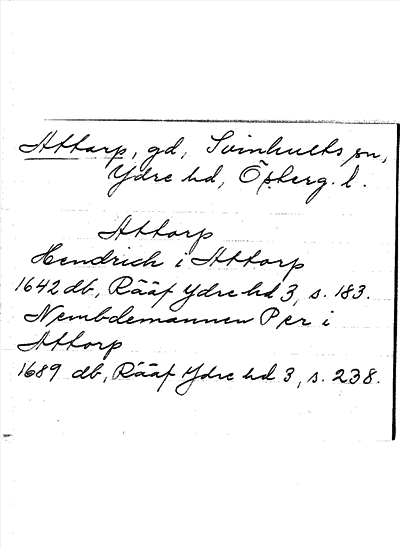 Attarp, gd, Svinhults sn,
Ydre hd, Östergl.
Attarp
Hendrich i Attarp
1642 db, Rääf Ydre hd 3, s. 183.
Nembdemannen Per i
Attorp
1689 db, Rääf Ydre hd 3, s. 238.